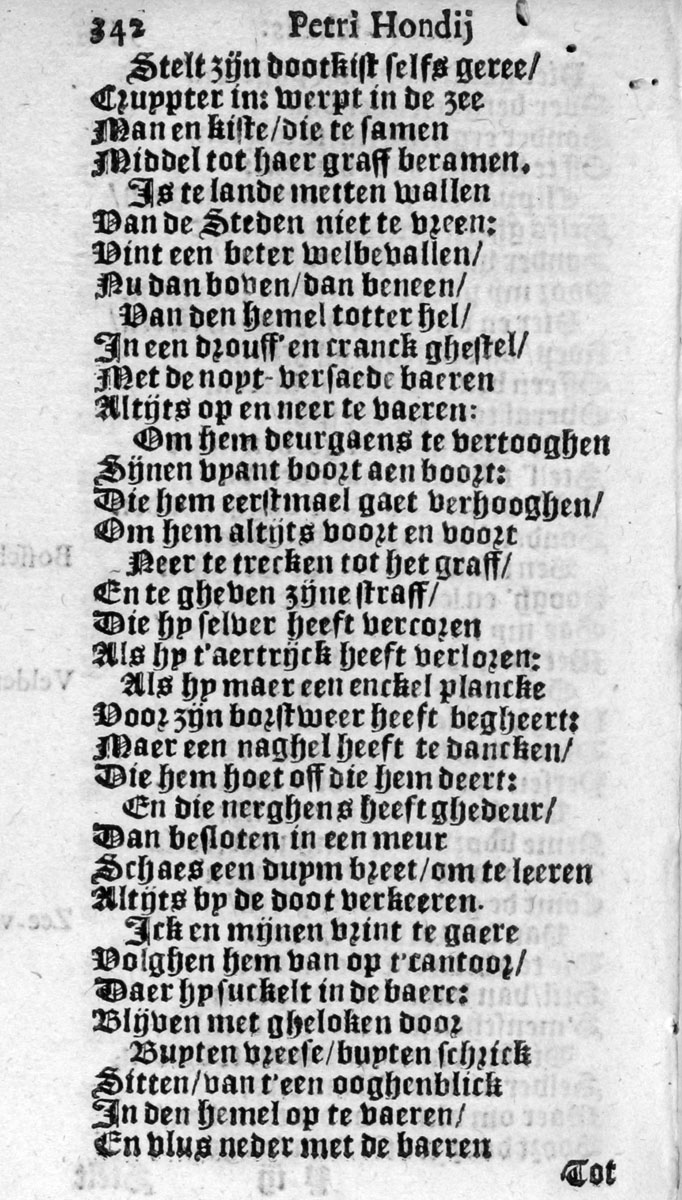 342 Petri Hondij
Stelt zijn dootkist selfs geree/
Cruypter in: werpt in de zee
Man en kiste/die te samen
Middel tot haer graff beramen.
Is te lande metten wallen
Van de Steden niet te vreen:
Vint een beter welbevallen/
Nu dan boven/dan beneen/
Van den hemel totter hel/
In een drouff' en cranck ghestel/
Met de noyt-versaede baeren
Altijts op en neer te vaeren:
Om hem deurgaens te vertooghen
Sijnen vyant boort aen boort:
Die hem eerstmael gaet verhooghen/
Om hem altijts voort en voort
Neer te trecken tot het graff/
En te gheven zijne straff/
Die hy selver heeft vercoren
Als hy t'aertrijck heeft verloren:
Als hy maer een enckel plancke
Voor zijn borstweer heeft begheert:
Maer een naghel heeft te dancken/
Die hem hoet off die hem deert:
En die nerghens heeft ghedeur/
Dan besloten in een meur
Schaes een duym breet/om te leeren
Altijts by de doot verkeeren.
Ick en mijnen vrint te gaere
Volghen hem van op t'cantoor/
Daer hy suckelt in de baere:
Blijven met gheloken door
Buyten vreese/buyten schrick
Sitten/van t'een ooghenblick
In den hemel op te vaeren/
En vlus neder met de baeren
Tot